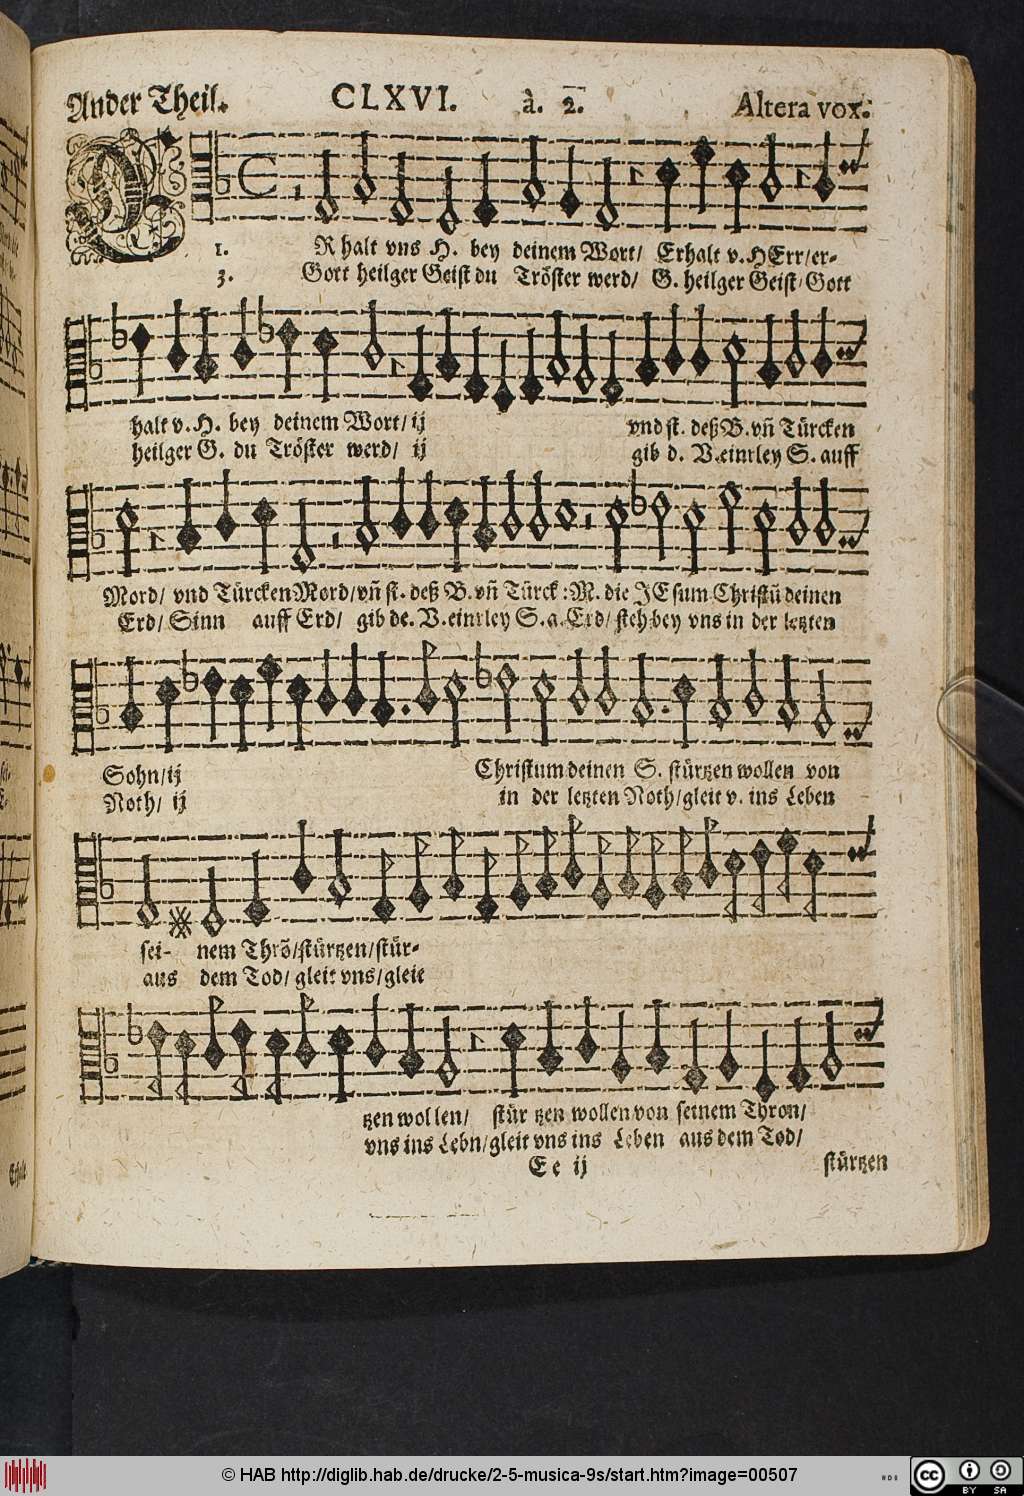 Ander Theil. CLXVI. à. 2. Altera vox.
1. R halt vns H. bey deinem Wort/ Erhalt v. HErr/er-
3. Gott heilger Geist du Tröster werd/ G. heilger Geist/Gott
halt v. H. bey deinem Wort/ ij vnd st. deß B. vñ Türcken
heilger G. du Tröster werd/ ij gib d. V. einrley S. auff
Mord/ vnd Türcken Mord/vñ st. deß B. vñ Türck: M. die JEsum Christū deinen
Erd/ Sinn auff Erd/ gib de. V. einrley S. a. Erd/ steh bey vns in der letzten
Sohn/ij Christum deinen S. stürtzen wollen von
Noth/ ij in der letzten Noth/gleit v. ins Leben
sei- nem Thrõ/stürtzen/stür-
aus dem Tod/ gleit vns/gleie
tzen wollen/ stür tzen wollen von seinem Thron/
vns ins Lebn/gleit vns ins Leben aus dem Tod/
Ee ij stürtzen
© HAB http://diglib.hab.de/drucke/2-5-musica-9s/start.htm?image=00507
cc BY SA